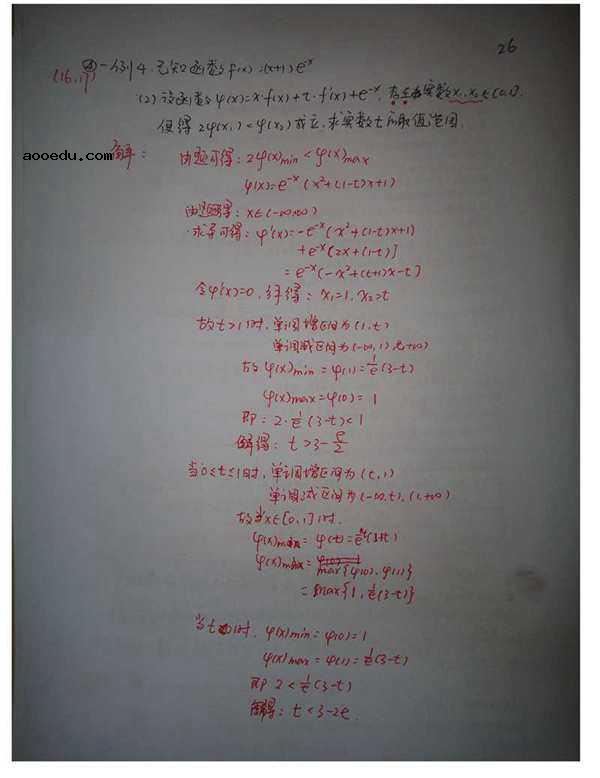 26
(16、17)
④一例4.已知函数f(x)=(x+1)e^-x
(2)设函数φ(x)=x·f(x)+t·f'(x)+e^-x,存在实数x₁,x₂∈[0,1]
使得2φ(x₁)<φ(x₂)成立,求实数t的取值范围.
aooedu.com
解: 由题可得:2φ(x)min<φ(x)max
φ(x)=e^-x(x²+(1-t)x+1)
由题解得:x∈(-∞,+∞)
求导可得:φ'(x)=-e^-x(x²+(1-t)x+1)
+e^-x[2x+(1-t)]
=e^-x[-x²+(t+1)x-t]
令φ'(x)=0,解得:x₁=1,x₂=t
故t>1时,单调增区间为(1,t)
单调减区间为(-∞,1),(t,+∞)
故φ(x)min=φ(1)=1/e(3-t)
φ(x)max=φ(0)=1
即:2·1/e(3-t)<1
解得:t>3-e/2
当0<t≤1时,单调增区间为(t,1)
单调减区间为(-∞,t),(1,+∞)
故当x∈[0,1]时.
φ(x)=φ(t)=
φ(x)max=
max{φ(0),φ(1)}
=max{1,1/e(3-t)}
当t 时,φ(x)min=φ(0)=1
φ(x)max=φ(1)=1/e(3-t)
即2<1/e(3-t)
解得:t<3-2e.